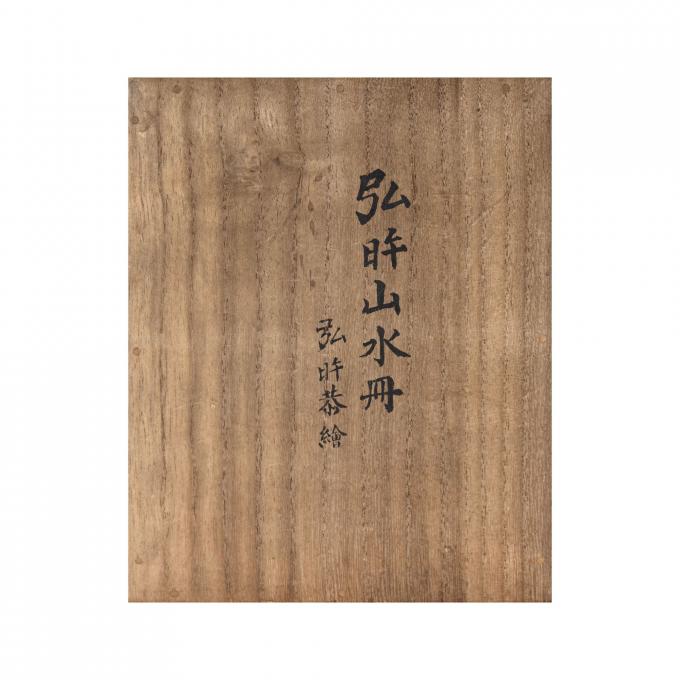 弘旿山水冊
弘旿恭繪